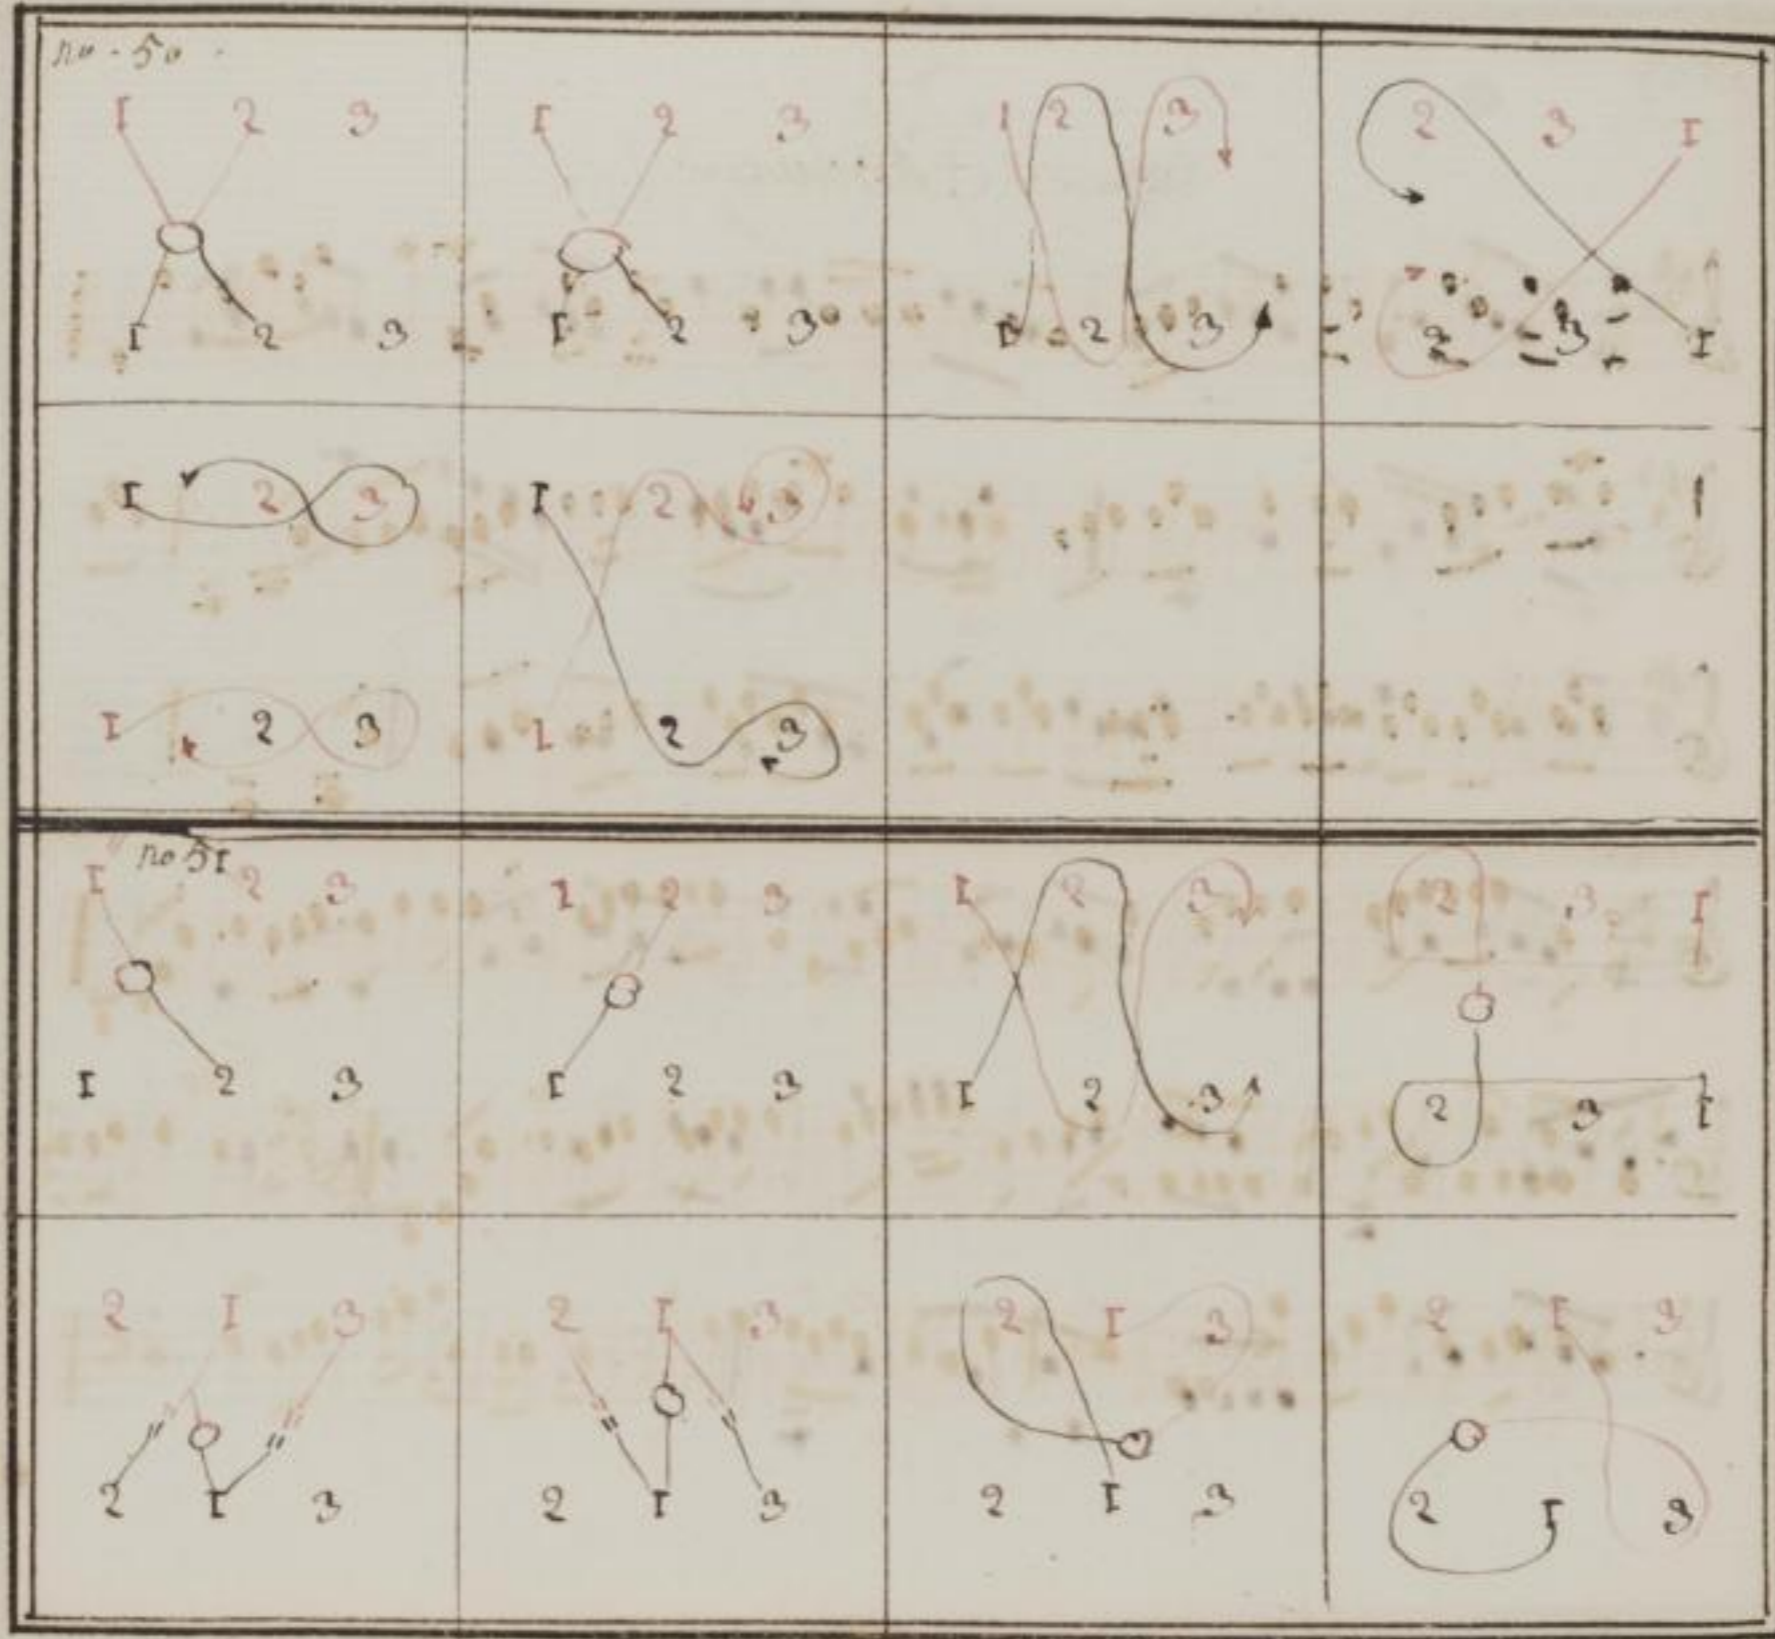 no. 50.
1 2 3 1 2 3 1 2 3 2 3 1
1 2 3 1 2 3 1 2 3 2 3 1
1 2 3 1 2 3
1 2 3 1 2 3
no 51
1 2 3 1 2 3 1 2 3 2 3 1
1 2 3 1 2 3 1 2 3 2 3 1
2 1 3 2 1 3 2 1 3 2 1 3
2 1 3 2 1 3 2 1 3 2 1 3